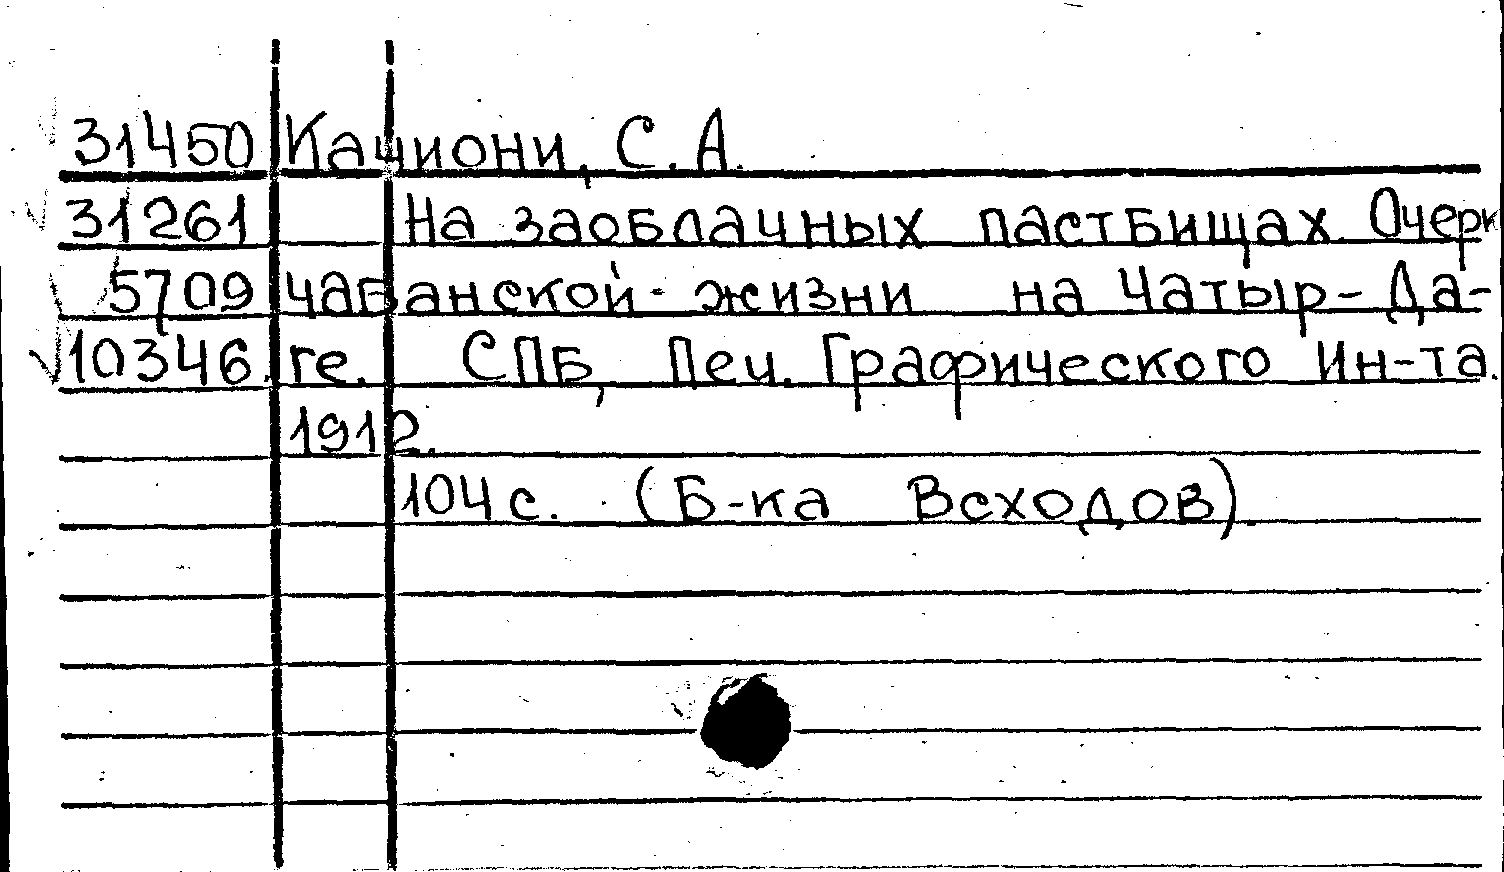 31450 Качиони, С. А.
31261 На заоблачных пастбищах. Очерк
5709 чабанской жизни на Чатыр-Да-
10346. ге. СПБ, Печ. Графического Ин-та.
1912.
104 с. (Б-ка Всходов).